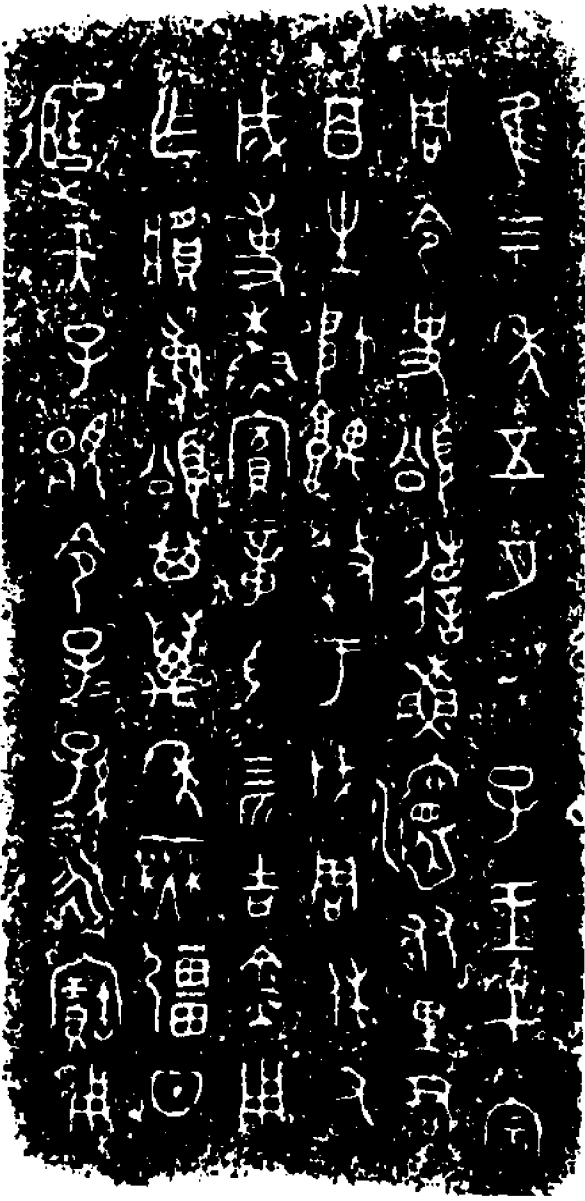 隹三年五月丁巳王才宗
周令史頌省蘇姻友里君
百生帥堣盩于成周休又
成事蘇賓章馬四匹吉金用
乍䵼彝頌其萬年無疆日
天子顯令子=孫=永寶用